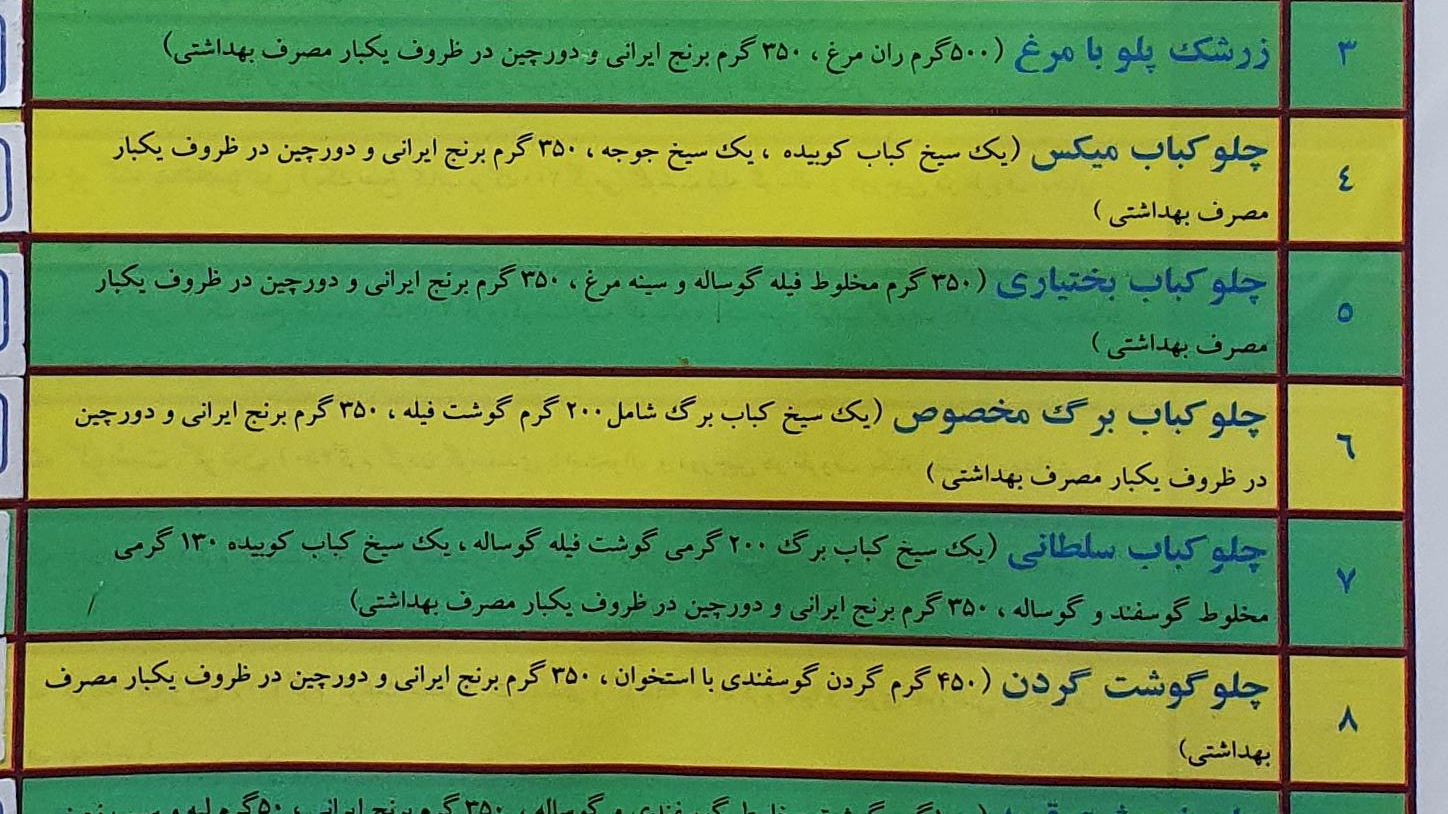 ۳
زرشک پلو با مرغ (۵۰۰گرم ران مرغ ، ۳۵۰ گرم برنج ایرانی و دورچین در ظروف یکبار مصرف بهداشتی)
٤
چلو کباب میکس (یک سیخ کباب کوبیده ، یک سیخ جوجه ، ۳۵۰ گرم برنج ایرانی و دورچین در ظروف یکبار
مصرف بهداشتی )
۵
چلو کباب بختیاری (۳۵۰ گرم مخلوط فیله گوساله و سینه مرغ ، ۳۵۰ گرم برنج ایرانی و دورچین در ظروف یکبار
مصرف بهداشتی )
٦
چلو کباب برگ مخصوص (یک سیخ کباب برگ شامل ۲۰۰ گرم گوشت فیله ، ۳۵۰ گرم برنج ایرانی و دورچین
در ظروف یکبار مصرف بهداشتی )
۷
چلو کباب سلطانی (یک سیخ کباب برگ ۲۰۰ گرمی گوشت فیله گوساله ، یک سیخ کباب کوبیده ۱۳۰ گرمی
مخلوط گوسفند و گوساله ، ۳۵۰ گرم برنج ایرانی و دورچین در ظروف یکبار مصرف بهداشتی)
۸
چلو گوشت گردن (۴۵۰ گرم گردن گوسفندی با استخوان ، ۳۵۰ گرم برنج ایرانی و دورچین در ظروف یکبار مصرف
بهداشتی)
گوساله ، ۳۵۰ گرم برنج ایرانی ، ۵۰گرم لپه و